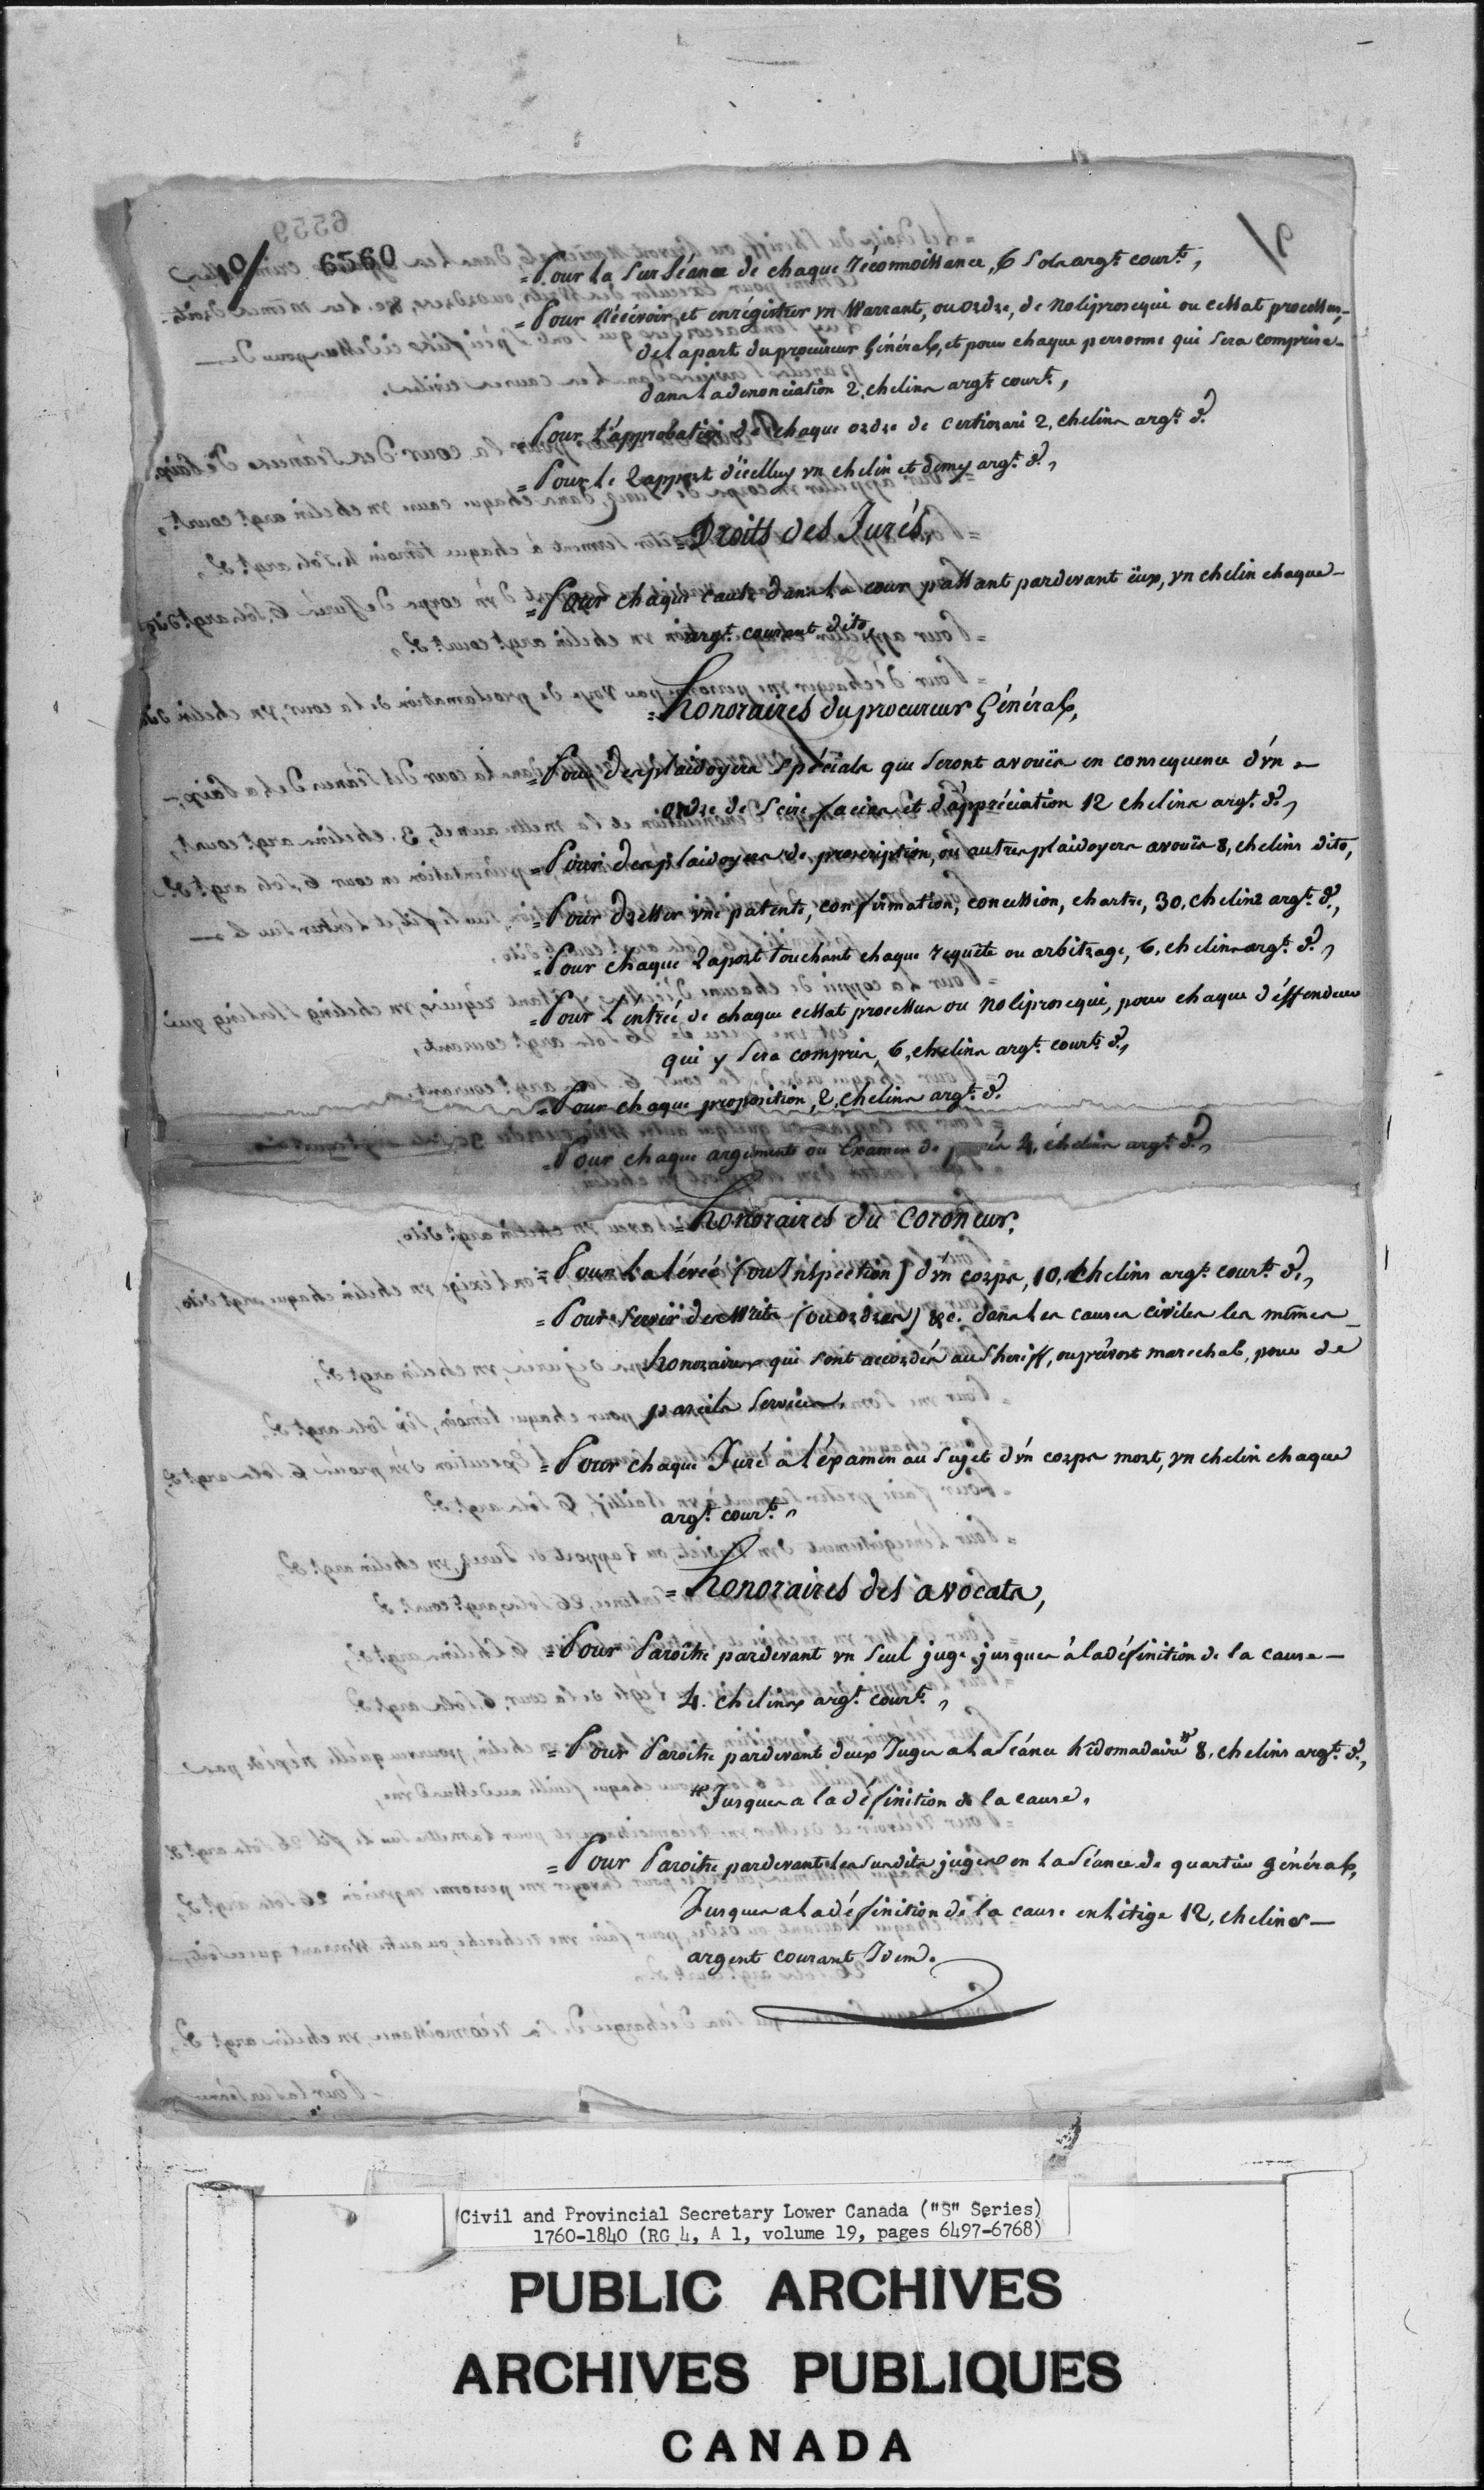 10/ 6560
= Pour la surséance de chaque réconnoissance, 6 sols argt. court.,
= Pour récévoir et enrégistrer vn Warrant, ou ordre, de noliprosequi ou cessat processus,
de la part du procureur Général, et pour chaque personne qui sera comprise
dans la dénonciation 2. chelins argt. court.,
= Pour l'approbation de chaque ordre de certiorari 2, chelins argt. d.º
= Pour le rapport d'icelluy vn chelin et demy argt. d.º,
= Droits des Jurés,
= Pour chaque cause dans la cour passant pardevant eux, vn chelin chaque
argt. courant dito,
= honoraires du procureur Général,
= Pour des plaidoyers spécials qui seront avoués en consequence d'vn
ordre de scire facias et d'appréciation 12 chelins argt. d.º,
= Pour des plaidoyers de prescription, ou autres plaidoyers avoués 8, chelins dito,
= Pour dresser vne patente, confirmation, concession, chartre, 30. chelins argt. d.º,
= Pour chaque raport touchant chaque requête ou arbitrage, 6. chelins argt. d.º,
= Pour l'entrée de chaque cessat processus ou noliprosequi, pour chaque déffendeur
qui y sera compris, 6, chelins argt. court. d.º,
= Pour chaque proposition, 2, chelins argt. d.º
= Pour chaque arguments ou Examen de 4. chelins argt. d.º,
= honoraires du Coroneur,
= Pour la lévée (ou Inspection) d'vn corps, 10, chelins argt. court. d.º,
= Pour servir des Writs (ou ordres) &c. dans les causes civiles les mêmes
honoraires qui sont accordés au Sheriff, ou prévost marechal, pour de
pareils services.
= Pour chaque Juré à l'éxamen au sujet d'vn corps mort, vn chelin chaque
argt. court.,
= honoraires des avocats,
= Pour Paroître pardevant vn seul juge jusques à la définition de la cause
4. chelins argt. court.,
= Pour Paroître pardevant deux Juges à la séance hédomadaire # 8. chelins argt. d.º,
# Jusques a la définition de la cause,
= Pour Paroître pardevant les susdits juges en la séance de quartier général,
Jusques a la définition de la cause en litige 12, chelins
argent courant Idem.
Civil and Provincial Secretary Lower Canada ("S" Series)
1760-1840 (RG 4, A 1, volume 19, pages 6497-6768)
PUBLIC ARCHIVES
ARCHIVES PUBLIQUES
CANADA